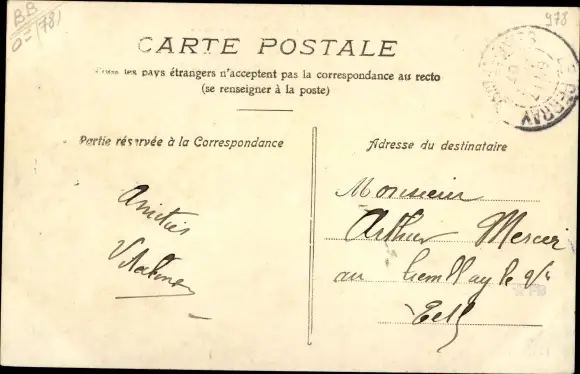 B.B
0= (78)
978
CARTE POSTALE
les pays étrangers n'acceptent pas la correspondance au recto
(se renseigner à la poste)
Partie réservée à la Correspondance
Adresse du destinataire
Amitiés
Monsieur
Arthur Mercier
au Tremblay le